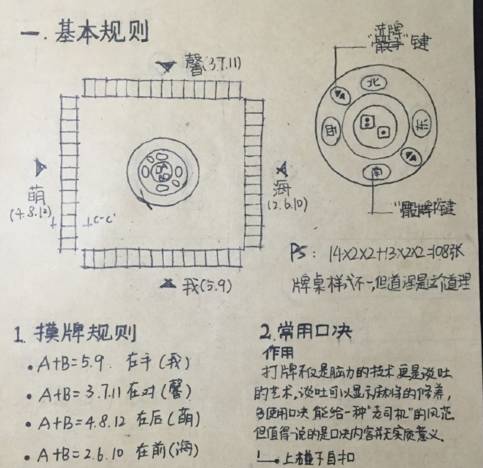 一. 基本规则
"洗牌"键
馨(3.7.11)
北
东
南
西
萌
(4.8.12)
海
(2.6.10)
C-C'
我(5.9)
PS: 14×2×2+13×2×2=108张
牌桌样式不一,但道理是这个道理
1. 摸牌规则
• A+B=5.9. 在手(我)
• A+B=3.7.11 在对(馨)
• A+B=4.8.12 在后(萌)
• A+B=2.6.10 在前(海)
2. 常用口决
作用
打牌不仅是脑力的技术更是谈吐
的艺术,谈吐可以显示麻将的修养,
多使用口决 能给一种"老司机"的风范
但值得一说的是口决内容并无实质意义.
上碰下自扣